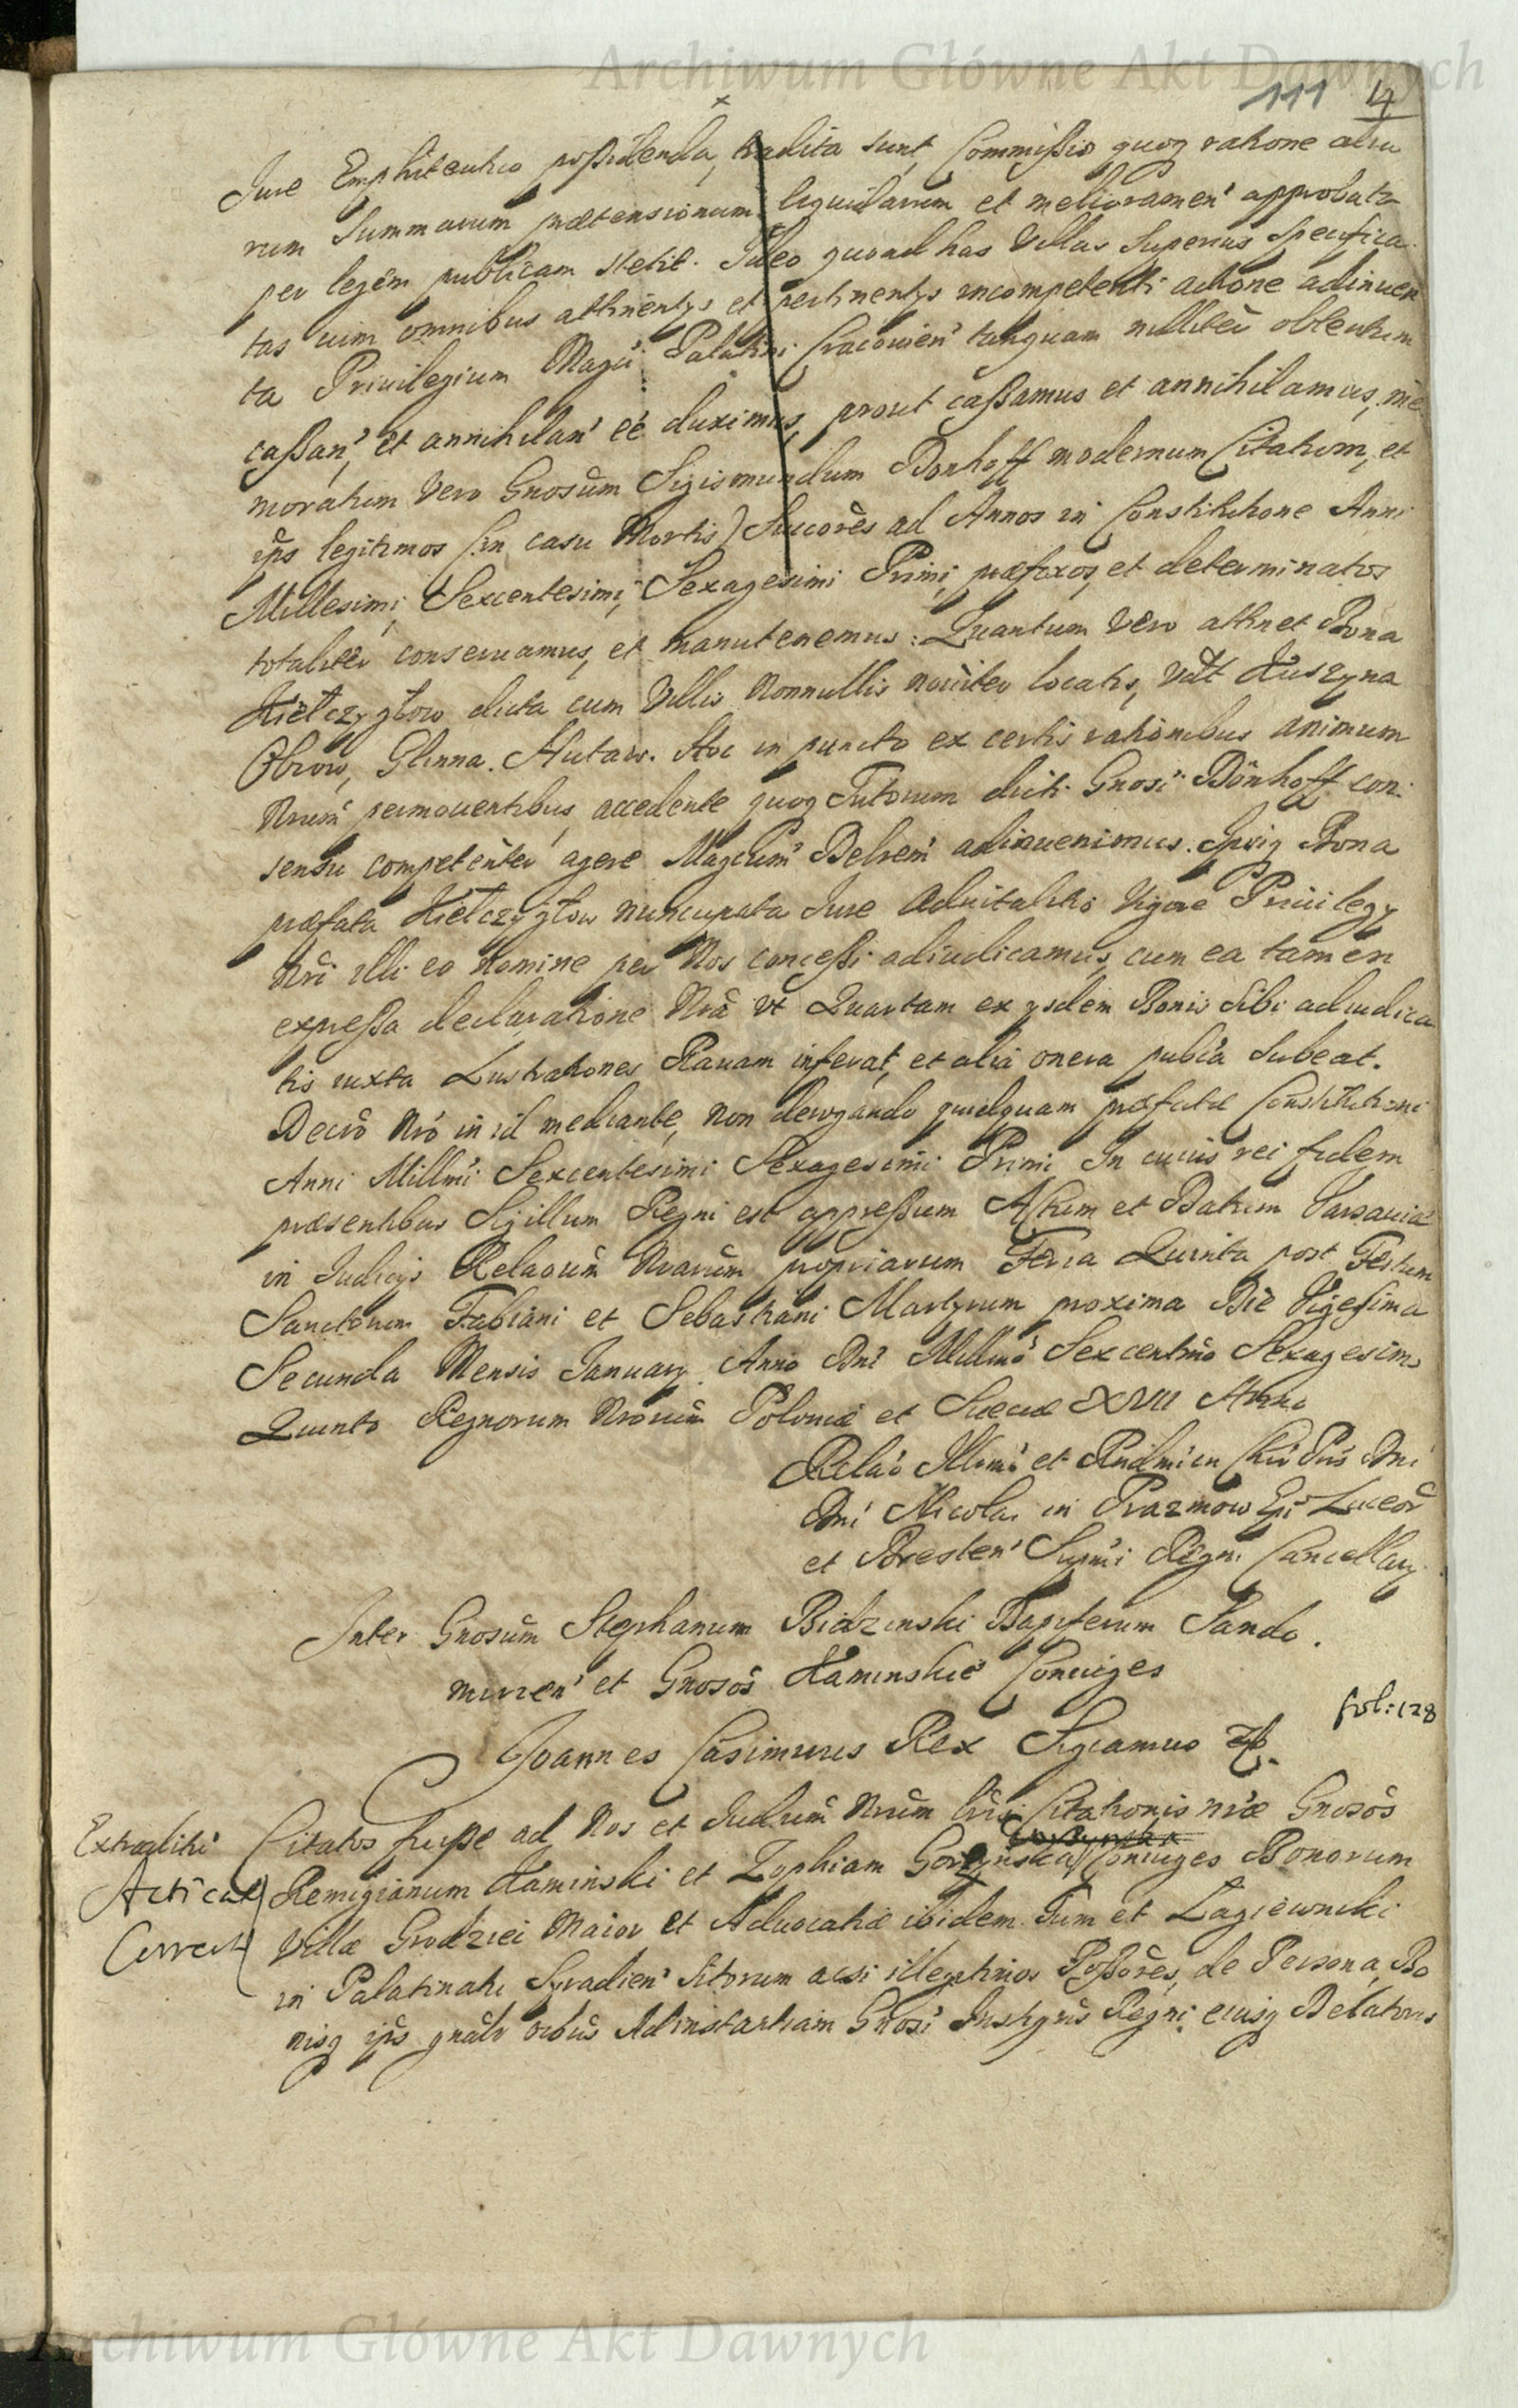 Archiwum Główne Akt Dawnych
111 4
Jure Emphiteutico possidenda, tradita sunt, Commissio quoq ratione alia
rum Summarum prætensionum liquidarum et melioramen' approbata
per legem publicam stetit. Ideo quoad has Villas Superius Specifica
tas cum omnibus attinentijs et pertinentijs incompetenti actione adinven
ta Privilegium Magci Palatini Cracovien' tanquam nulliter obtentum
cassan', et annihilan' ee duximus, prout cassamus et annihilamus, me
moratum Vero Gnosum Sigismundum Donhoff modernum Citatum, et
ips legitimos (in casu Mortis) Succores ad Annos in Constitutione Anni
Millesimi, Sexcentesimi, Sexagesimi Primi, præfixos, et determinatos
totaliter conservamus, et manutenemus: Quantum Vero attinet Bona
Kiełczygłow dicta cum Villis Nonnullis noviter locatis, Vdt Kuszyna
Obrow, Glinna. Hutaw. Hoc in puncto ex certis rationibus animum
Nrum permoventibus, accedente quoq Tutorum dicti Gnosi Dönhoff con
sensu competenter agere Magcum Delrem adinvenimus. Ipsiq Bona
præfata Kiełczygłow nuncupata Jure Advitalitio Vigore Privilegy
Nri illi eo Nomine per Nos concessi adiudicamus, cum ea tamen
expressa declaratione Nra vt Quartam ex ysdem Bonis Sibi adiudica
tis iuxta Lustrationes Ravam inferat, et alia onera publca Subeat.
Decro Nro in id mediante, non derogando quidquam præfatæ Constitutioni
Anni Millmi Sexcentesimi Sexagesimi Primi In cuius rei fidem
præsentibus Sigillum Regni est appressum Actum et Datum Varsaviæ
in Judicijs Relaoum Nrarum propriarum Feria Quinta post Festum
Sanctorum Fabiani et Sebastiani Martyrum proxima Die Vigesima
Secunda Mensis January. Anno Dni Millmo Sexcentmo Sexagesimo
Quinto Regnorum Nrorum Poloniæ et Sueciæ XVII Anno
Relao Illmi et Rndmi in Chro Pris Dni
Dni Nicolai in Prazmow Epi Luceor
et Bresten' Supmi Regni Cancellary
Inter Gnosum Stephanum Bidzinski Dapiferum Sando
mirien' et Gnosos Kaminskie Coniuges
fol: 128
Joannes Casimirus Rex Sigcamus
Citatos fuisse ad Nos et Judium Nrum lris Citationis nræ Gnosos
Extraditū
Remigianum Kaminski et Zophiam Gorzynska Coniuges Bonorum
Acticat)
Villæ Grodziei Maior et Advocatiæ ibidem. Tum et Łagiewniki
Correct)
in Palatinatu Syradien' Sitorum acsi illegitimos Possores, de Persona, Bo
nisq ips gnalr oibus Ad instantiam Gnosi Instigris Regni eiusq Delatoris
Archiwum Główne Akt Dawnych